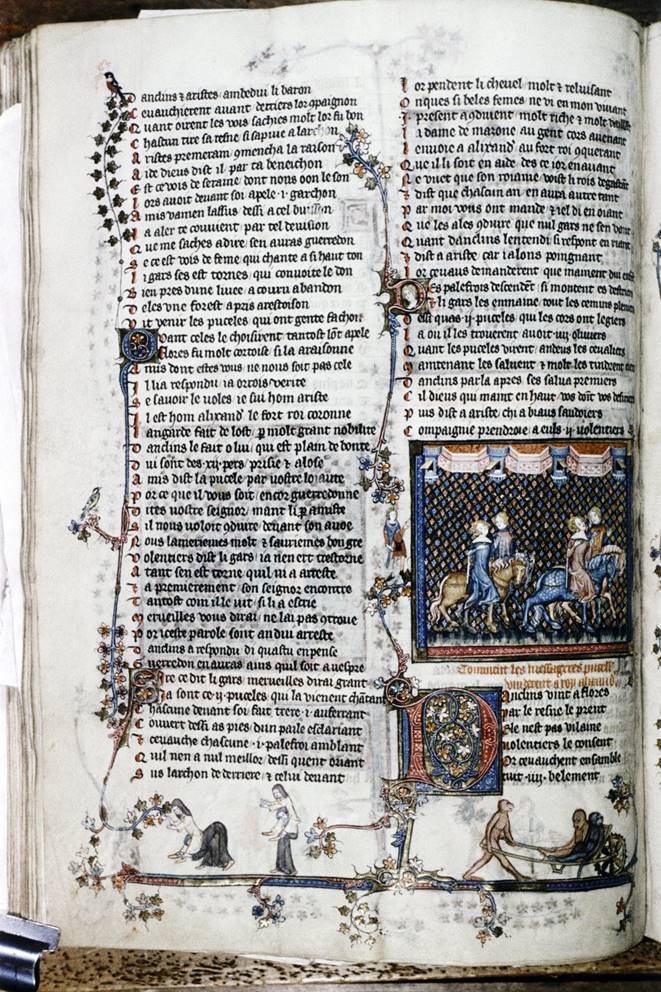 anclins & aristes ambedui li baron
C euauchierent auant derriers lor gpaignon
Q uant oirent les vois saches molt lor fu bon
C hascun tire sa resne si sapuie a larchon
A ristes premeram gmencha la raison
A ide dieus dist il par ta beneichon
E st ce vois de seraine dont nous oon le son
L ors auoit deuant soi apele .i. garchon
A mis vamen lassus dessi a cel buisson
I a aler te couuient par tel deuision
Q ue me saches a dire sen auras guerredon
S e ce est vois de feme qui chante a si haut ton
L i gars ses est tornes qui conuoite le don
B ien pres dune liuee a couru abandon
D eles vne forest apries arestoison
V it venir les puceles qui ont gente fachon
Q uant celes le choisirent tantost lont apele
F lores fu molt cortoise si la araisonne
A mis dont estes vous ne nous soit pas cele
I l lia respondu ia orrois verite
S e sauoir le voles ie sui hom ariste
I l est hom alixand le fort roi coronne
L angarde fait de lost p molt grant nobilite
D anclins le fait o lui qui est plain de bonte
D ui sont des .xii. pers prisie & alose
A mis dist la pucele par vostre loiaute
P or ce que il vous soit encor guerredonne
D ites vostre seignor mant li p amiste
S il nous voloit gduire deuant son auoe
N ous lameriemes molt & sauriemes bon gre
V olentiers dist li gars ia nen ert trestorne
A tant sen est torne quil ni a arreste
& a premierement son seignor encontre
T antost com ille vit si li a escrie
M erueilles vous dirai ne lai pas otroue
P or iceste parole sont andui arreste
D anclins a respondu di quas tu en pense
G uerredon en auras ains quil soit auespre
S ire ce dit li gars merueilles dirai grant
I a sont ce .ij. puceles qui la vienent chantant
C hascune deuant soi fait trere .i. auferrant
C ouuert dessi as pies dun paile esclariant
& ceuauche chascune .i. palefroi amblant
Q uil nen a nul meillor dessi quent oriant
S us larchon de derriere & celui deuant
L or pendent li cheuel molt & reluisant
O nques si beles femes ne vi en mon viuant
I. present aqduient molt riche & molt
L i dame de mazone au gent cors auenant
E nuoie a alixand au fort roi gquerant
Q ue il li soit en aide des ce ior en auant
N e vuet que son roiaume voist li rois degastant
& dist que chascun an en aura autre tant
P ar moi vous ont mande & iel di en oiant
Q ue les ales gduire que nul gars ne sen vant
Q uant danclins lentendi si respont en riant
& dist a ariste car i alons poingnant
L or ceuaus demanderent que mainent dui
D es palefrois descendent si montent es destriers
& li gars les enmaine tout les cemins pleniers
D esi quas .ij. puceles qui les cors ont legiers
L a ou il les trouerent auoit .iiij. oliuiers
Q uant les puceles virent andeus les ceualiers
M aintenant les saluent & molt les
D anclins parla apres ses salua premiers
C il dieus qui maint en haut vos doit vos desiriers
P uis dist a ariste chi a biaus saudoiers
C ompaignie prendroie a euls .ij. volentiers
Comment les messageres
vinerent a roy alixandre
D anclins vint a flores
par le resne le prent
Ele nest pas vilaine
volentiers le consent
Or ceuauchent ensamble
tuit .iiij. belement